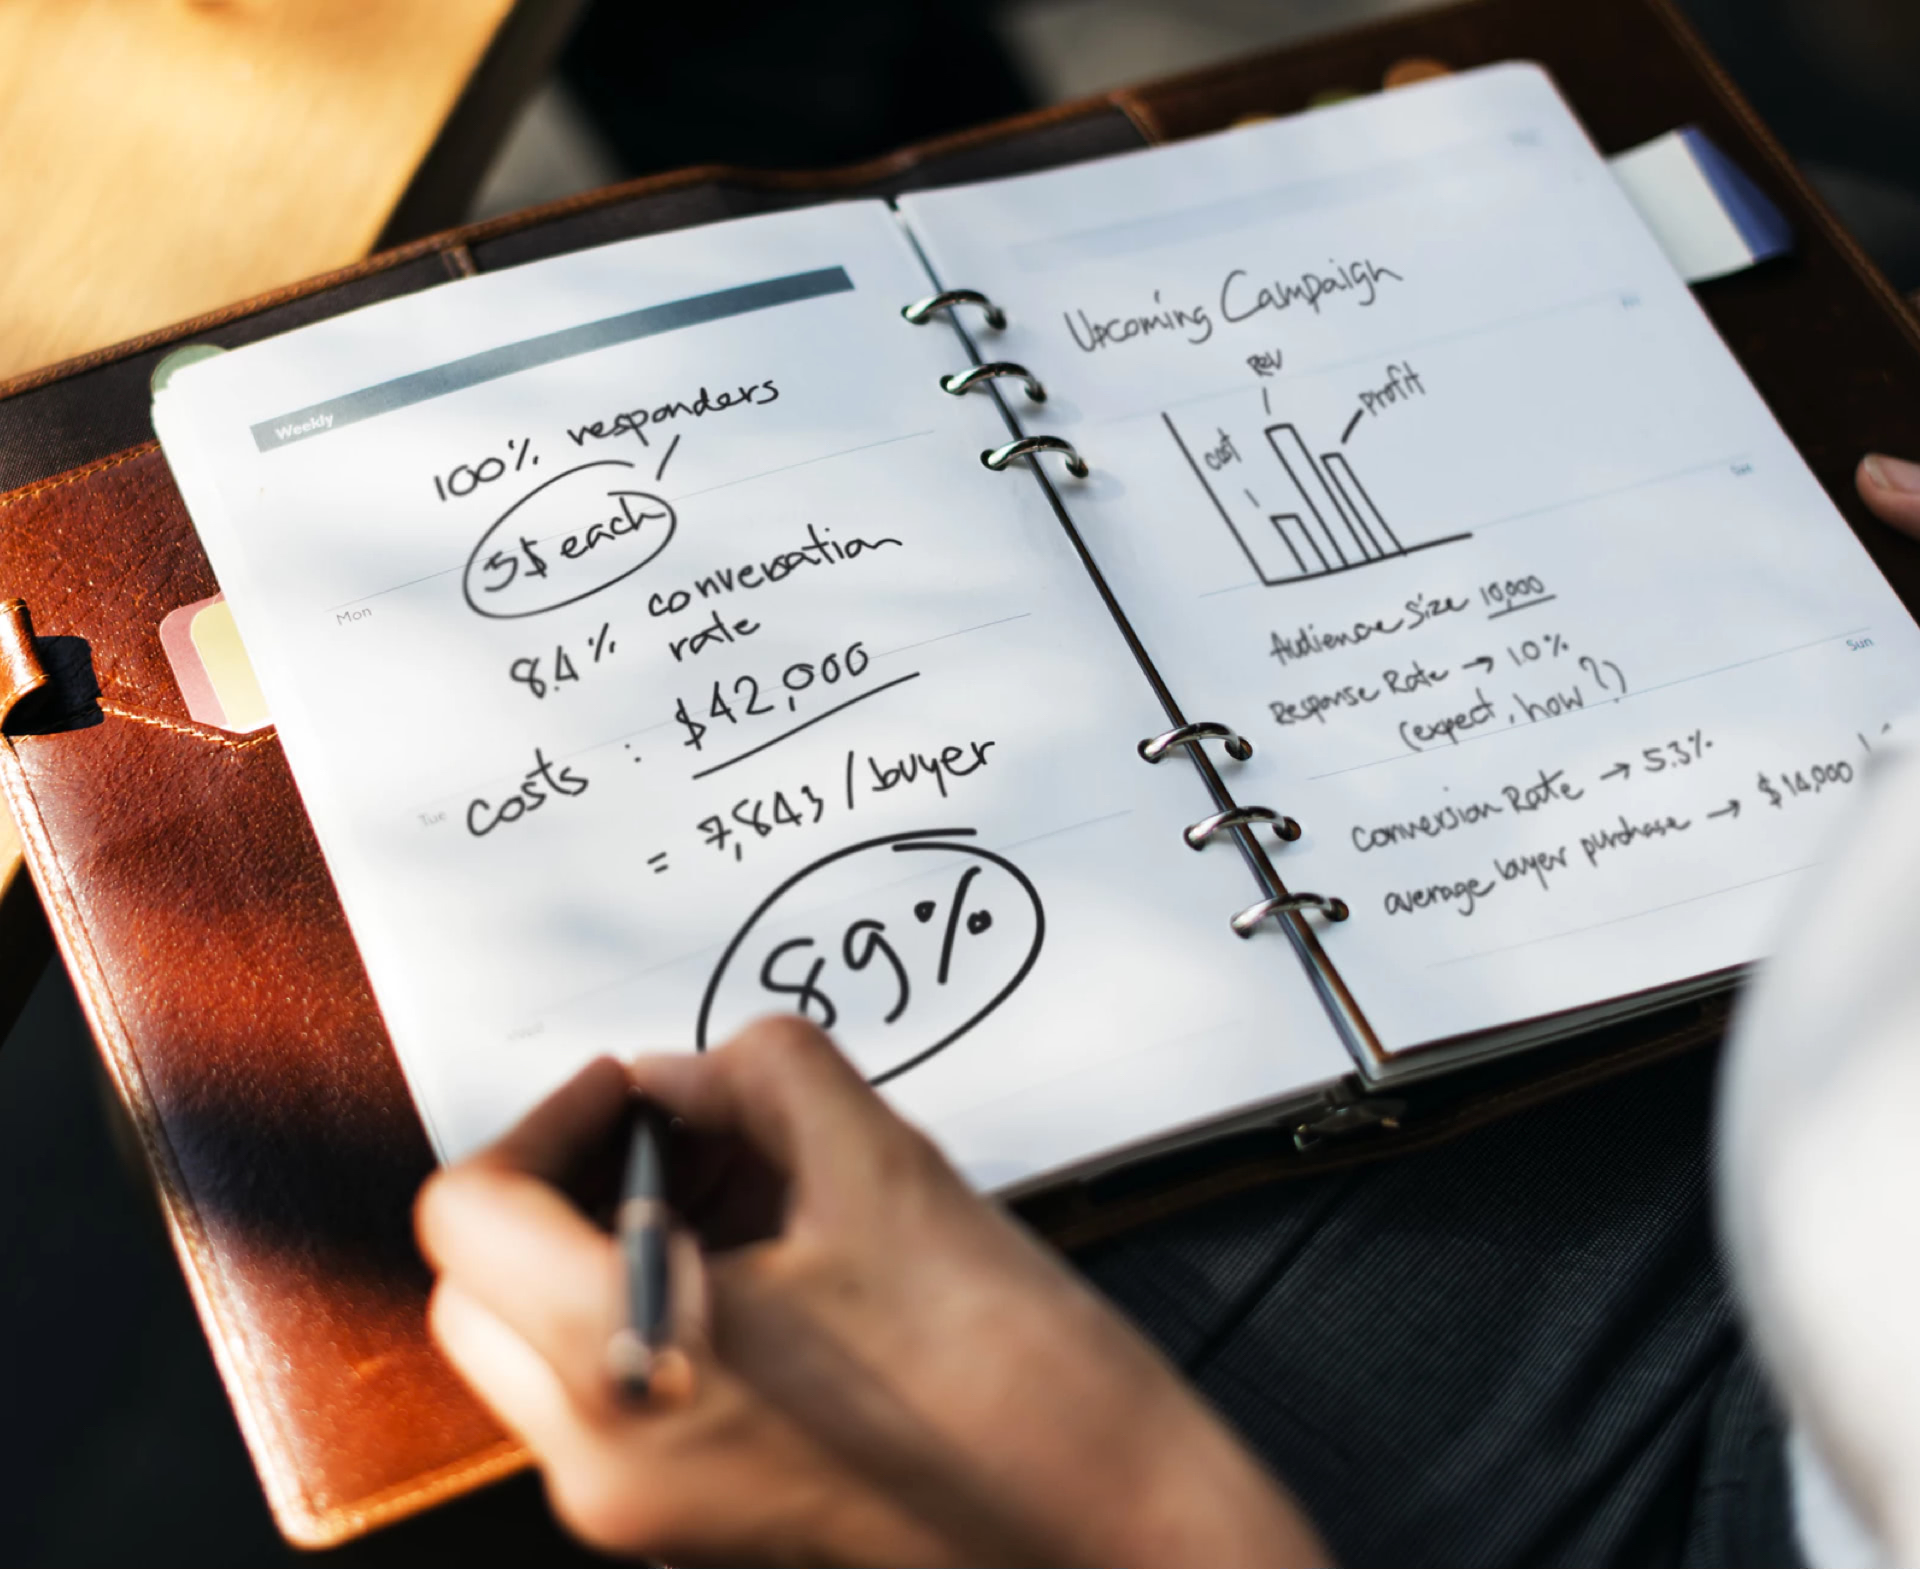 Weekly
100% responders
5$ each
8.4% conversation
rate
costs : $42,000
= 7,843 / buyer
89%
Mon
Tue
Upcoming Campaign
Rev
cost
Profit
Audience Size 10,000
Response Rate → 1.0%
(expect, how?)
Conversion Rate → 5.3%
average buyer purchase → $14,000
Sun